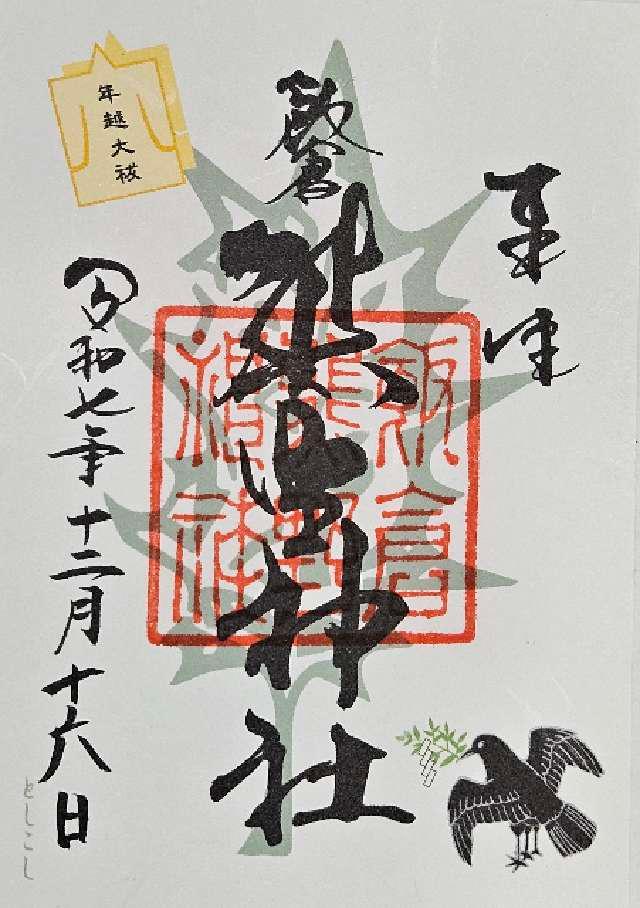 奉拝
飯倉
熊野神社
飯倉
熊野
神社
年越大祓
令和七年十二月十六日
としこし